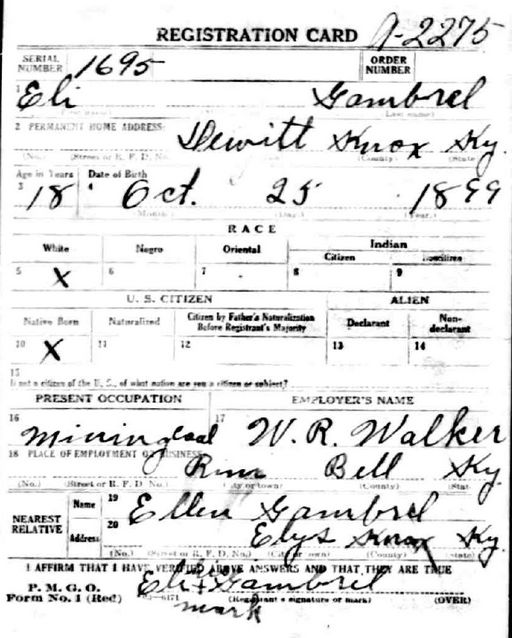 REGISTRATION CARD A-2275
SERIAL NUMBER 1695 ORDER NUMBER
1 Eli Gambrel
(Last name)
2 PERMANENT HOME ADDRESS: Dewitt Knox Ky.
(No.) (Street or R. F. D. No.) (County) (State)
Age in Years Date of Birth
3 18 4 Oct. 25 1899
(Month.) (Day.) (Year.)
RACE
White Negro Oriental Indian
Citizen Noncitizen
5 X 6 7 8 9
U. S. CITIZEN ALIEN
Native Born Naturalized Citizen by Father's Naturalization Before Registrant's Majority Declarant Non-declarant
10 X 11 12 13 14
15
If not a citizen of the U. S., of what nation are you a citizen or subject?
PRESENT OCCUPATION EMPLOYER'S NAME
16 Mining Coal 17 W. R. Walker
18 PLACE OF EMPLOYMENT OR BUSINESS:
Bell Ky.
(No.) (Street or R. F. D. No.) (City or town) (County) (State)
NEAREST RELATIVE Name 19 Ellen Gambrel
Address 20 Elys Knox Ky.
(No.) (Street or R. F. D. No.) (City or town) (County) (State)
I AFFIRM THAT I HAVE VERIFIED ABOVE ANSWERS AND THAT THEY ARE TRUE
P. M. G. O.
Form No. 1 (Red) Eli + Gambrel
mark
(Registrant's signature or mark) (OVER)